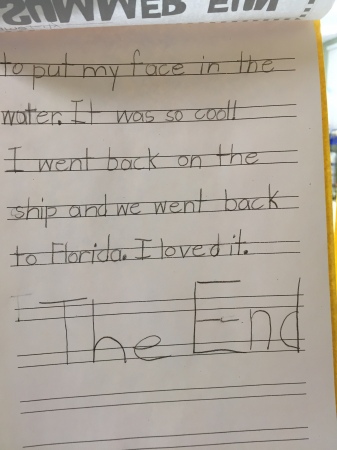 SUMMER FUN
to put my face in the
water. It was so cool!
I went back on the
ship and we went back
to Florida. I loved it.
The End